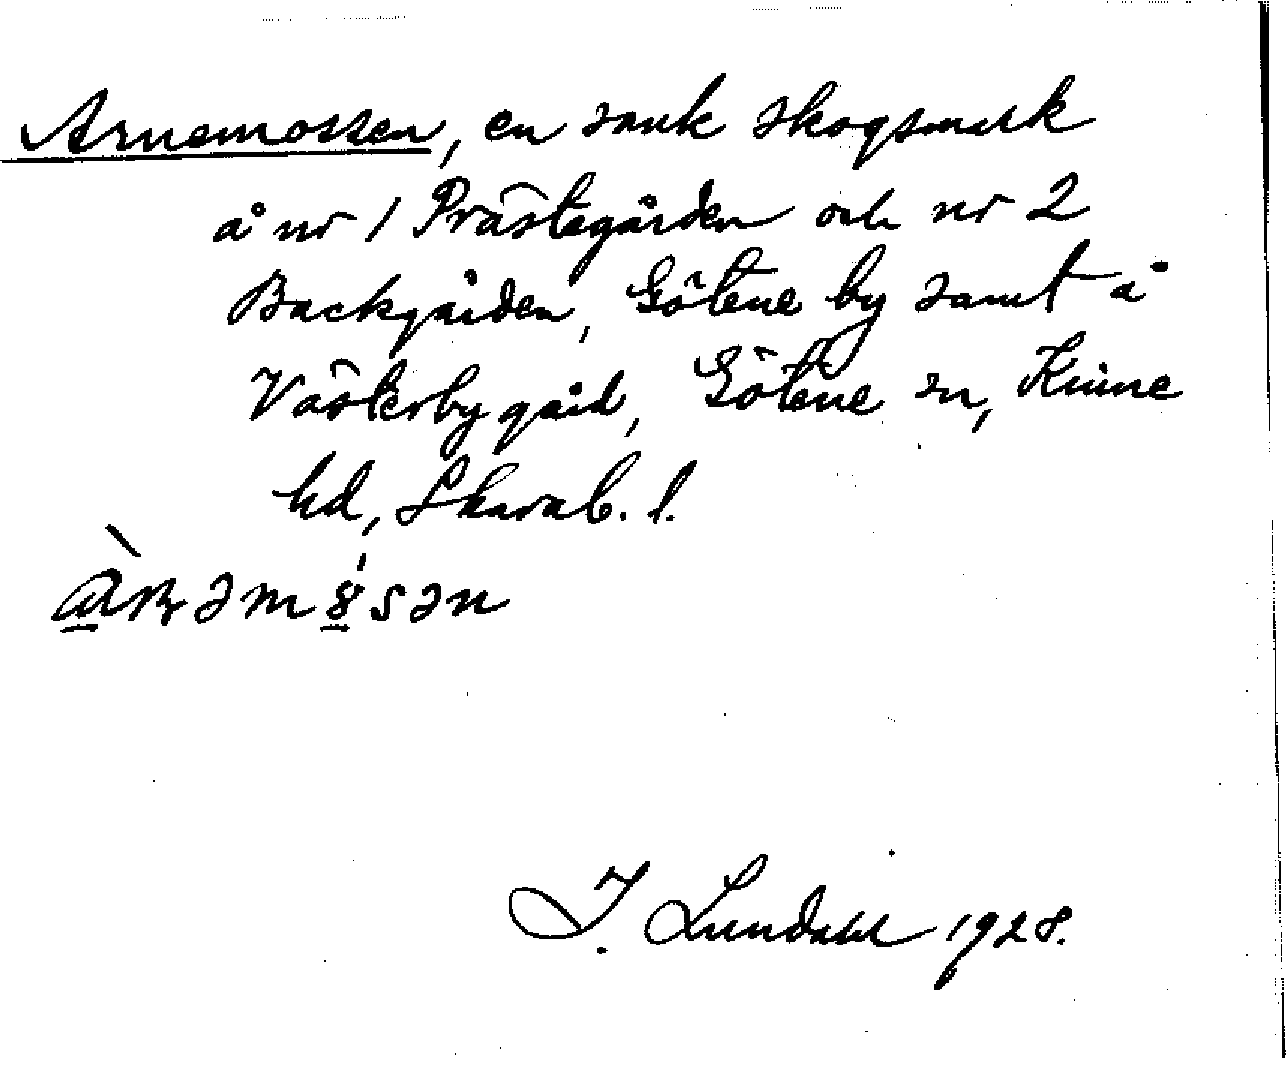 Arnemossen, en sank skogsmark
å nr 1 Prästegården och nr 2
Backgården, Götene by samt å
Västerbygård, Götene sn, Kinne
hd, Skarab. l.
J. Lundahl 1928.